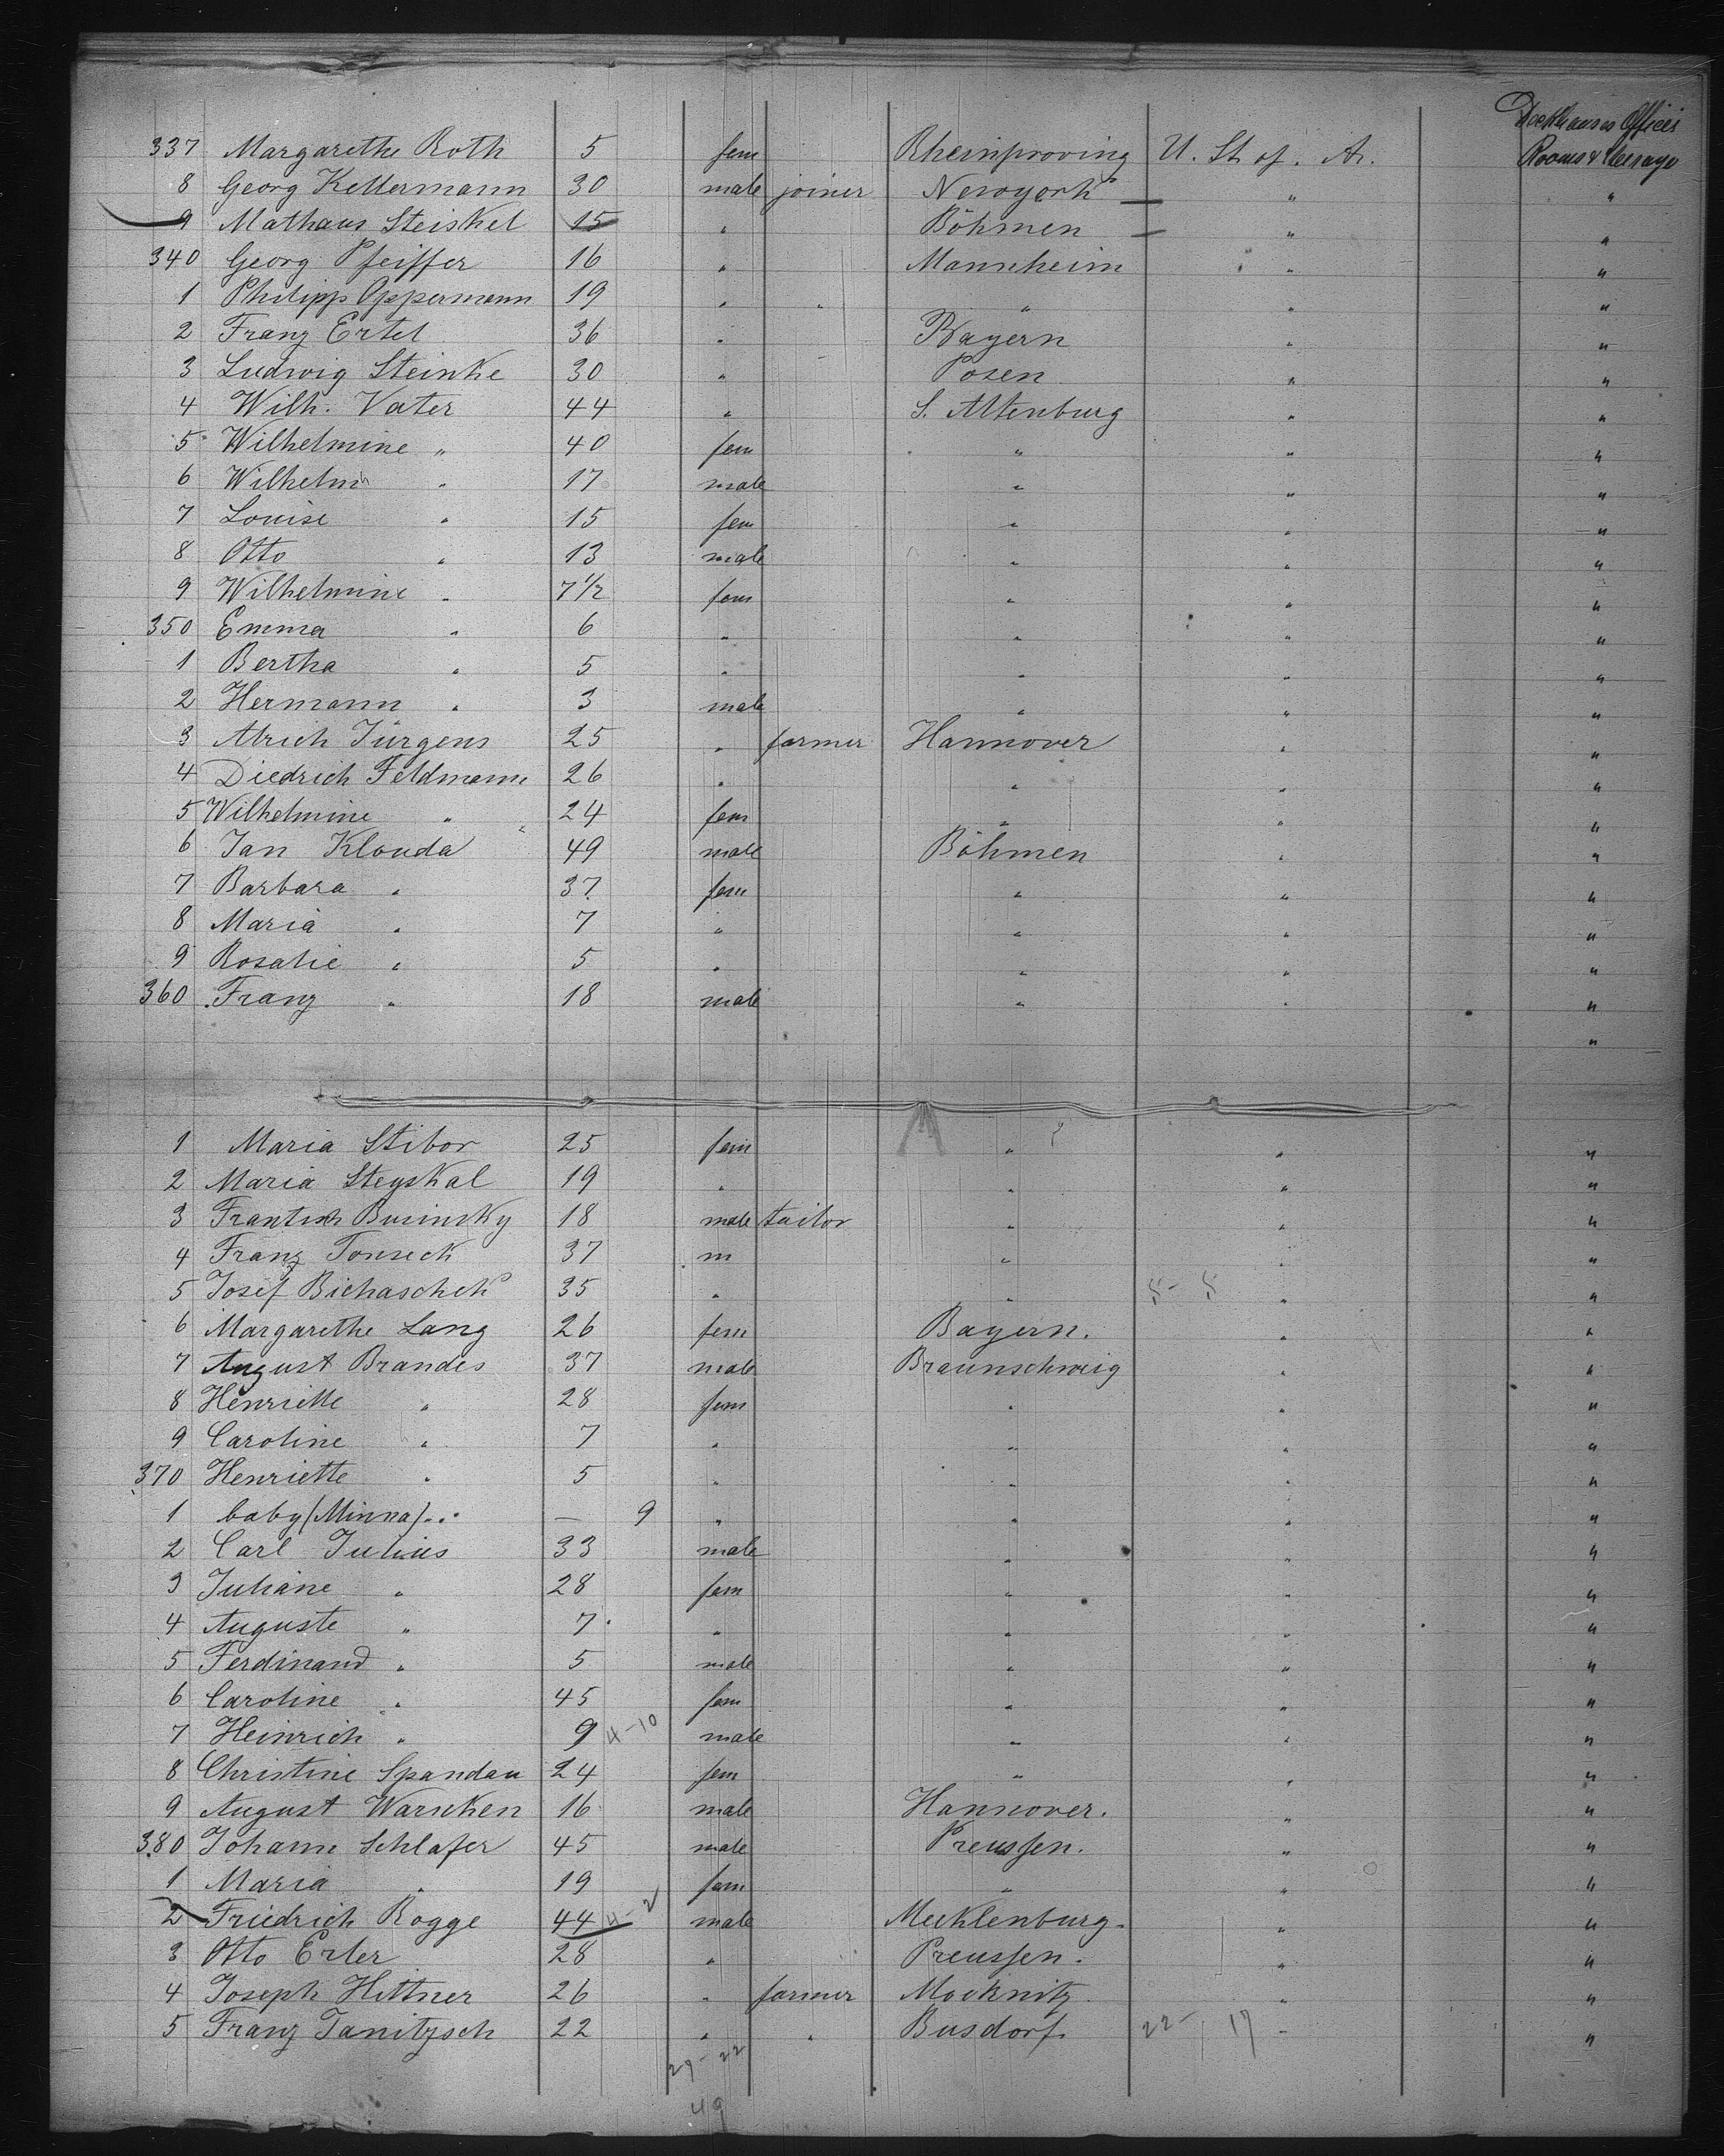 Deckhauses Offices
Rooms & Steerage
337 Margarethe Roth 5 fem Rheinproving U. St. of. A.
8 Georg Kellermann 30 male joiner Newyork " "
9 Mathaus Steiskel 15 " Böhmen " "
340 Georg Pfeiffer 16 " Mannheim " "
1 Philipp Oppermann 19 " " " " "
2 Franz Ertel 36 " Bayern " "
3 Ludwig Steinke 30 " Posen " "
4 Wilh. Vater 44 " S. Altenburg " "
5 Wilhelmine " 40 fem " " "
6 Wilhelm " 17 male " " "
7 Louise " 15 fem " " "
8 Otto " 13 male " " "
9 Wilhelmine " 7 1/2 fem " " "
350 Emma " 6 " " " "
1 Bertha " 5 " " " "
2 Hermann " 3 male " " "
3 Alrich Jürgens 25 " farmer Hannover " "
4 Diedrich Feldmann 26 " " " "
5 Wilhelmine " 24 fem " " "
6 Jan Klouda 49 male Böhmen " "
7 Barbara " 37 fem " " "
8 Maria " 7 " " " "
9 Rosalie " 5 " " " "
360 Franz " 18 male " " "
"
1 Maria Stibor 25 fem " " "
2 Maria Steyskal 19 " " " "
3 Frantisk Businsky 18 male tailor " " "
4 Franz Tonseck 37 m " " "
5 Josef Bichaschek 35 " " 5 - 5 " "
6 Margarethe Lang 26 fem Bayern. " "
7 August Brandes 37 male Braunschweig " "
8 Henriette " 28 fem " " "
9 Caroline " 7 " " " "
370 Henriette " 5 " " " "
1 baby (Minna) " — 9 " " " "
2 Carl Julius 33 male " " "
3 Juliane " 28 fem " " "
4 Auguste " 7 " " " "
5 Ferdinand " 5 male " " "
6 Caroline " 45 fem " " "
7 Heinrich " 9 4-10 male " " "
8 Christine Spandau 24 fem " " "
9 August Warnken 16 male Hannover. " "
380 Johann Schlafer 45 male Preussen. " "
1 Maria " 19 fem " " "
2 Friedrich Rogge 44 4-2 male Mecklenburg. " "
3 Otto Erler 28 " Preussen. " "
4 Joseph Hittner 26 " farmer Mocknitz " "
5 Franz Janitzsch 22 " " Busdorf. 22 - 17 " "
29-22
49